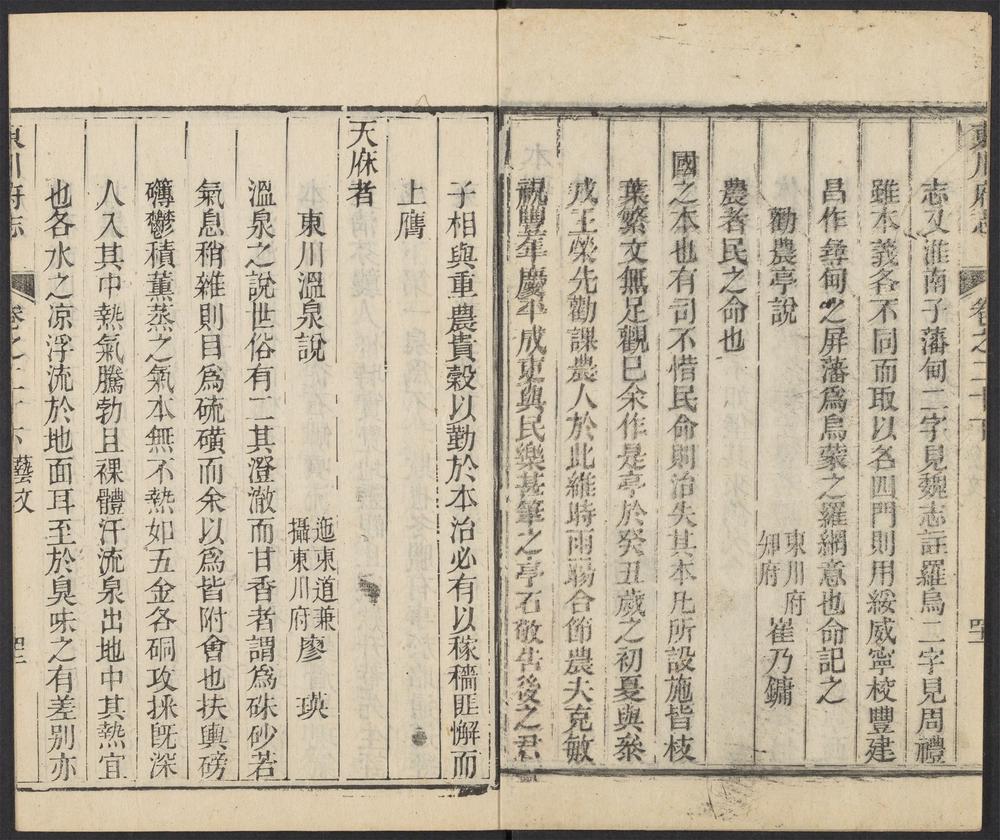 東川府志 卷之二十下 四十一
志又淮南子藩甸二字見魏志註羅鳥二字見周禮
雖本義各不同而取以名四門則用綏威寧校豐建
昌作尋甸之屏藩爲烏蒙之羅網意也命記之
勸農亭說 東川府知府 崔乃鏞
農者民之命也
國之本也有司不惜民命則治失其本凡所設施皆枝
葉繁文無足觀已余作是亭於癸丑歲之初夏與叅
戎王榮先勸課農人於此維時雨暘合節農夫克敏
視豐年慶 成吏與民樂甚筆之亭石敬告後之君
子相與重農貴榖以勤於本治必有以稼穡匪懈而
上膺
天庥者
東川溫泉說 迤東道兼攝東川府 廖瑛
溫泉之說世俗有二其澄澈而甘香者謂爲硃砂若
氣息稍雜則目爲硫磺而余以爲皆附會也扶輿磅
礴鬱積薰蒸之氣本無不熱如五金各硐攻採旣深
人入其中熱氣騰勃且裸體汗流泉出地中其熱宜
也各水之凉浮流於地面耳至於臭味之有差別亦
東川府志 卷之二十下 藝文 四十二